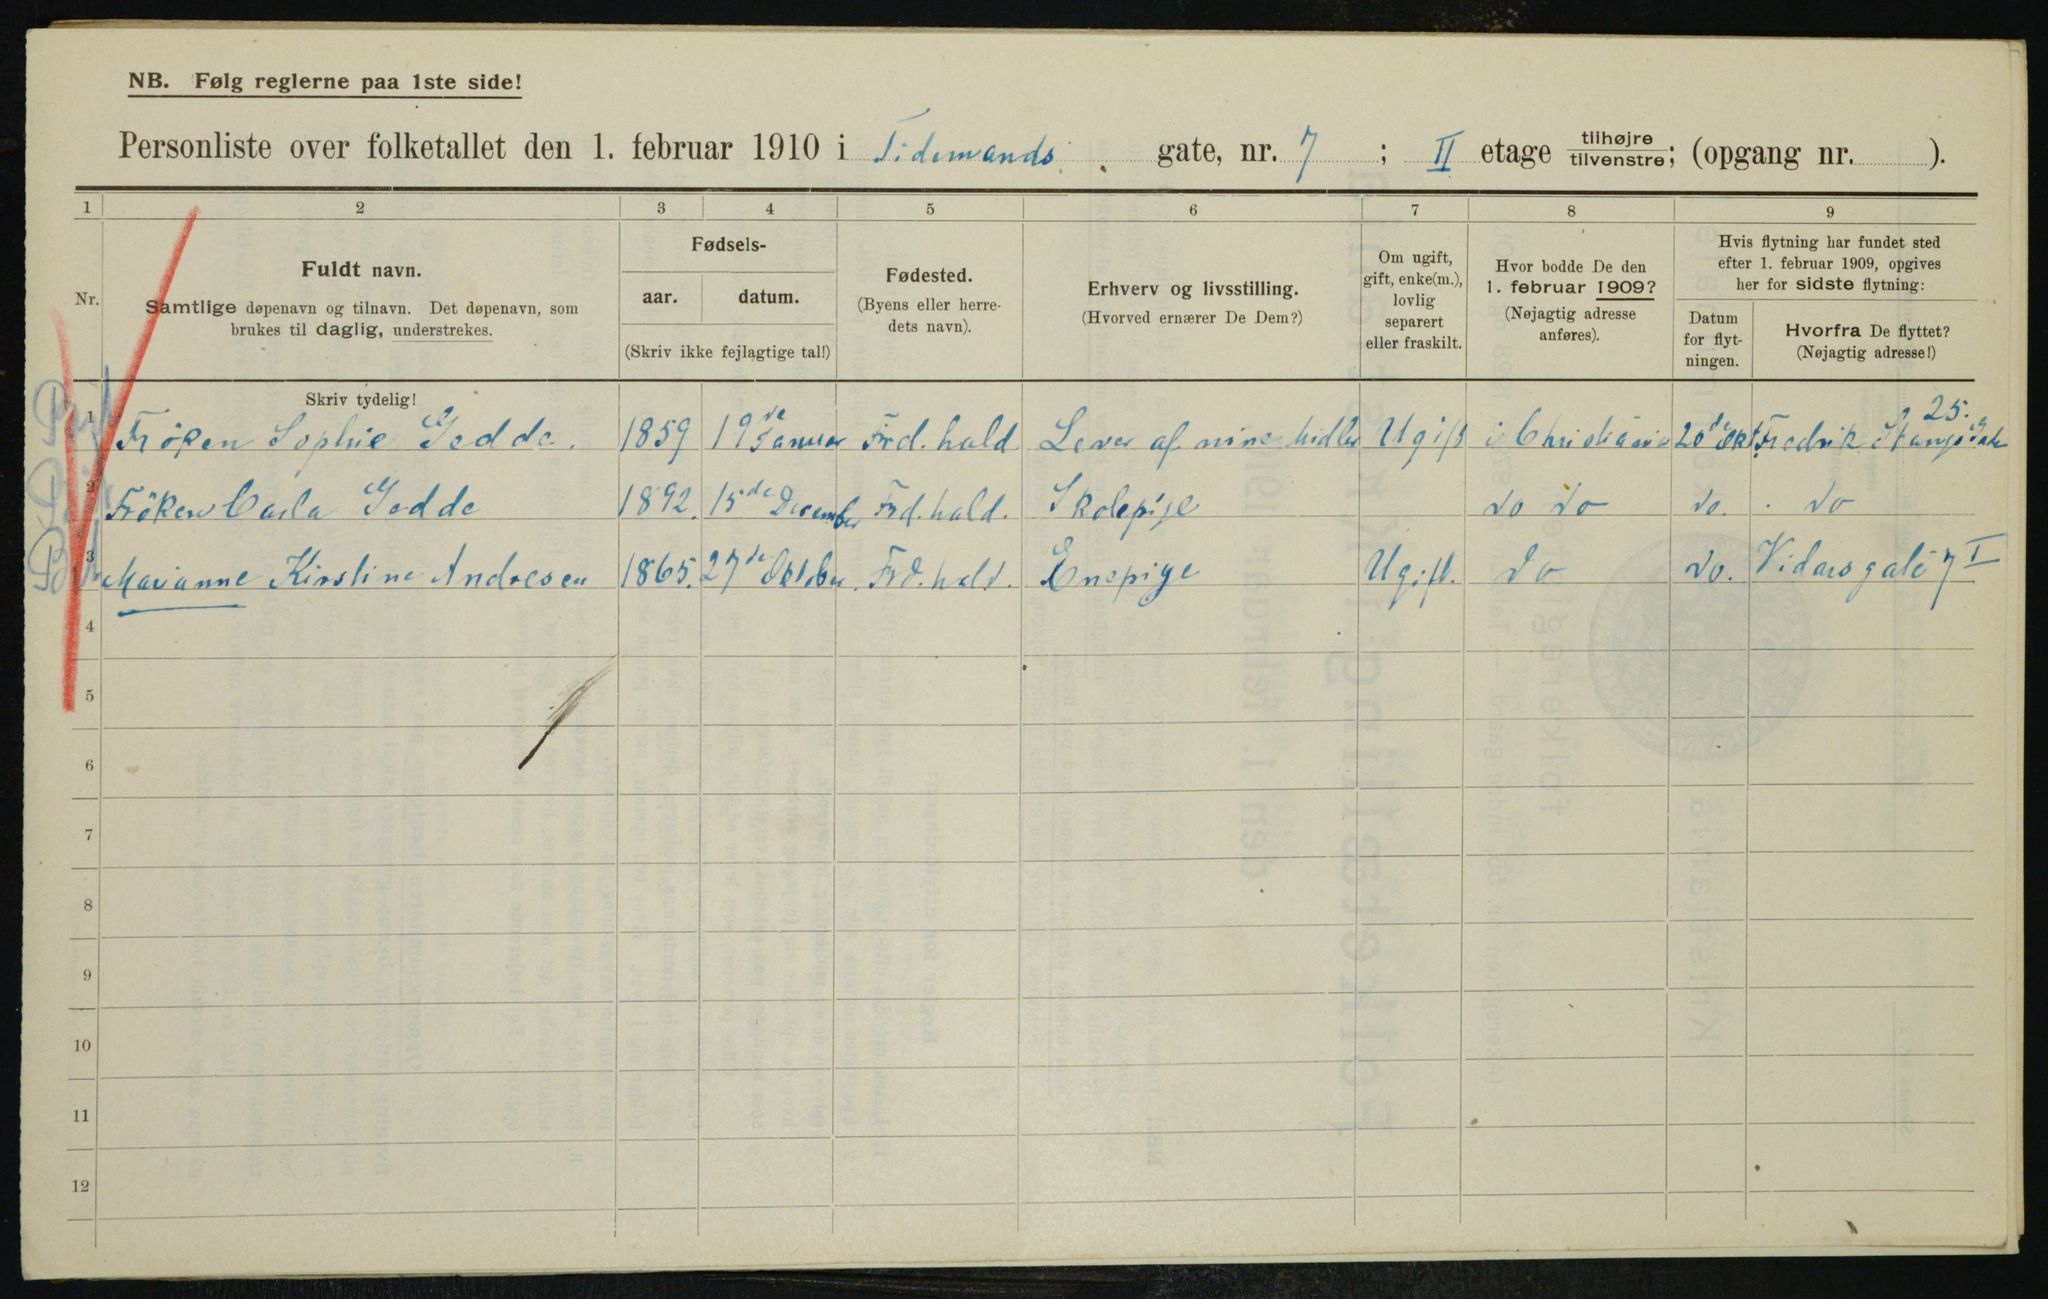 NB. Følg reglerne paa 1ste side!
Personliste over folketallet den 1. februar 1910 i Tidemands gate, nr. 7 ; II etage tilhøjre/tilvenstre; (opgang nr. ).
1 2 3 4 5 6 7 8 9
Nr.
Fuldt navn.
Samtlige døpenavn og tilnavn. Det døpenavn, som
brukes til daglig, understrekes.
Fødsels-
aar. datum.
(Skriv ikke fejlagtige tal!)
Fødested.
(Byens eller herre-
dets navn).
Erhverv og livsstilling.
(Hvorved ernærer De Dem?)
Om ugift,
gift, enke(m.),
lovlig
separert
eller fraskilt.
Hvor bodde De den
1. februar 1909?
(Nøjagtig adresse
anføres).
Hvis flytning har fundet sted
efter 1. februar 1909, opgives
her for sidste flytning:
Datum
for flyt-
ningen.
Hvorfra De flyttet?
(Nøjagtig adresse!)
Skriv tydelig!
1 Fröken Sophie Gedde. 1859 19de Januar Frd. hald Lever af mine Midler Ugift i Christiania 20de Okt Fredrik Stangs Gade 25.
2 Fröken Carla Gedde 1892. 15de December Frd. hald. Skolepige do do do. do
3 Marianne Kirstine Andresen 1865. 27de Oktober Frd. hald. Enepige Ugift. do do. Vidarsgate 7 I
4
5
6
7
8
9
10
11
12